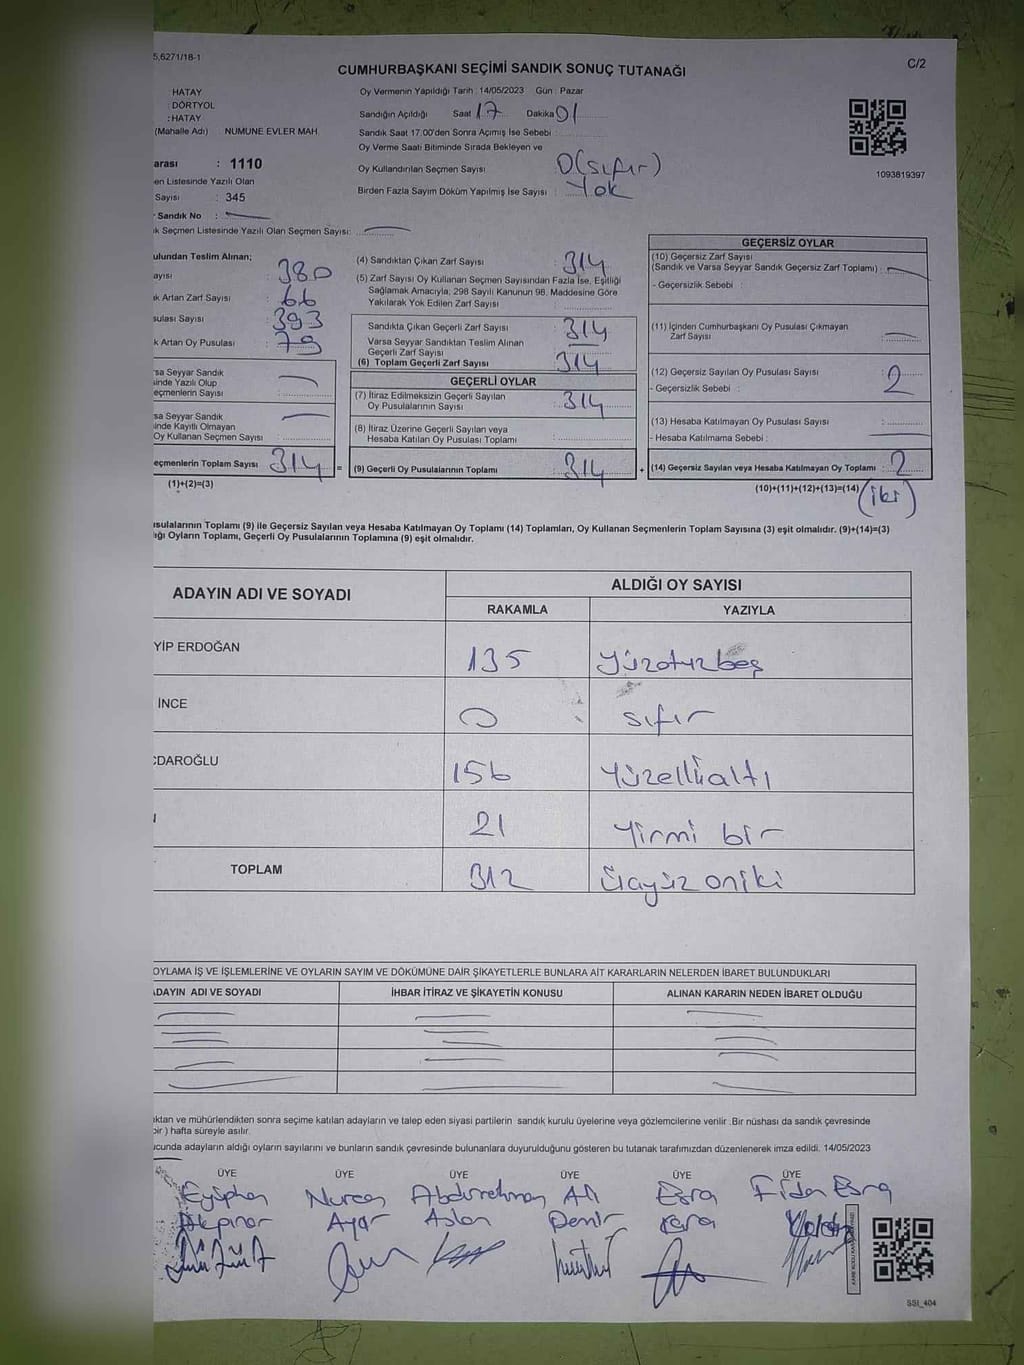 5,6271/18-1
C/2
CUMHURBAŞKANI SEÇİMİ SANDIK SONUÇ TUTANAĞI
HATAY
DÖRTYOL
: HATAY
(Mahalle Adı) NUMUNE EVLER MAH.
arası : 1110
en Listesinde Yazılı Olan
Sayısı : 345
Sandık No :
k Seçmen Listesinde Yazılı Olan Seçmen Sayısı:
Oy Vermenin Yapıldığı Tarih : 14/05/2023 Gün : Pazar
Sandığın Açıldığı Saat 17 Dakika 01
Sandık Saat 17.00'den Sonra Açılmış İse Sebebi :
Oy Verme Saati Bitiminde Sırada Bekleyen ve
Oy Kullandırılan Seçmen Sayısı : 0(sıfır)
Birden Fazla Sayım Döküm Yapılmış İse Sayısı : Yok
1093819397
ulundan Teslim Alınan;
ayısı : 380
k Artan Zarf Sayısı : 66
sulası Sayısı : 393
k Artan Oy Pusulası : 79
rsa Seyyar Sandık
sinde Yazılı Olup
eçmenlerin Sayısı
rsa Seyyar Sandık
inde Kayıtlı Olmayan
Oy Kullanan Seçmen Sayısı
eçmenlerin Toplam Sayısı 314 =
(1)+(2)=(3)
(4) Sandıktan Çıkan Zarf Sayısı : 314
(5) Zarf Sayısı Oy Kullanan Seçmen Sayısından Fazla İse, Eşitliği
Sağlamak Amacıyla; 298 Sayılı Kanunun 98. Maddesine Göre
Yakılarak Yok Edilen Zarf Sayısı :
Sandıkta Çıkan Geçerli Zarf Sayısı : 314
Varsa Seyyar Sandıktan Teslim Alınan
Geçerli Zarf Sayısı
(6) Toplam Geçerli Zarf Sayısı : 314
GEÇERLİ OYLAR
(7) İtiraz Edilmeksizin Geçerli Sayılan
Oy Pusulalarının Sayısı : 314
(8) İtiraz Üzerine Geçerli Sayılan veya
Hesaba Katılan Oy Pusulası Toplamı :
(9) Geçerli Oy Pusulalarının Toplamı : 314 +
GEÇERSİZ OYLAR
(10) Geçersiz Zarf Sayısı
(Sandık ve Varsa Seyyar Sandık Geçersiz Zarf Toplamı) :
- Geçersizlik Sebebi :
(11) İçinden Cumhurbaşkanı Oy Pusulası Çıkmayan
Zarf Sayısı :
(12) Geçersiz Sayılan Oy Pusulası Sayısı : 2
- Geçersizlik Sebebi :
(13) Hesaba Katılmayan Oy Pusulası Sayısı :
- Hesaba Katılmama Sebebi :
(14) Geçersiz Sayılan veya Hesaba Katılmayan Oy Toplamı : 2
(10)+(11)+(12)+(13)=(14) (iki)
usulalarının Toplamı (9) ile Geçersiz Sayılan veya Hesaba Katılmayan Oy Toplamı (14) Toplamları, Oy Kullanan Seçmenlerin Toplam Sayısına (3) eşit olmalıdır. (9)+(14)=(3)
ığı Oyların Toplamı, Geçerli Oy Pusulalarının Toplamına (9) eşit olmalıdır.
ADAYIN ADI VE SOYADI
ALDIĞI OY SAYISI
RAKAMLA YAZIYLA
YİP ERDOĞAN 135 Yüzotuzbeş
İNCE 0 sıfır
ÇDAROĞLU 156 Yüzellialtı
21 Yirmi bir
TOPLAM 312 Üçyüz oniki
OYLAMA İŞ VE İŞLEMLERİNE VE OYLARIN SAYIM VE DÖKÜMÜNE DAİR ŞİKAYETLERLE BUNLARA AİT KARARLARIN NELERDEN İBARET BULUNDUKLARI
ADAYIN ADI VE SOYADI İHBAR İTİRAZ VE ŞİKAYETİN KONUSU ALINAN KARARIN NEDEN İBARET OLDUĞU
ıktan ve mühürlendikten sonra seçime katılan adayların ve talep eden siyasi partilerin sandık kurulu üyelerine veya gözlemcilerine verilir .Bir nüshası da sandık çevresinde
bir ) hafta süreyle asılır.
ucunda adayların aldığı oyların sayılarını ve bunların sandık çevresinde bulunanlara duyurulduğunu gösteren bu tutanak tarafımızdan düzenlenerek imza edildi. 14/05/2023
ÜYE ÜYE ÜYE ÜYE ÜYE ÜYE
Eyüphan Nurcan Abdurrahman Ali Esra Fidan Esra
Akpınar Ayar Aslan Demir Kara
SSİ_404